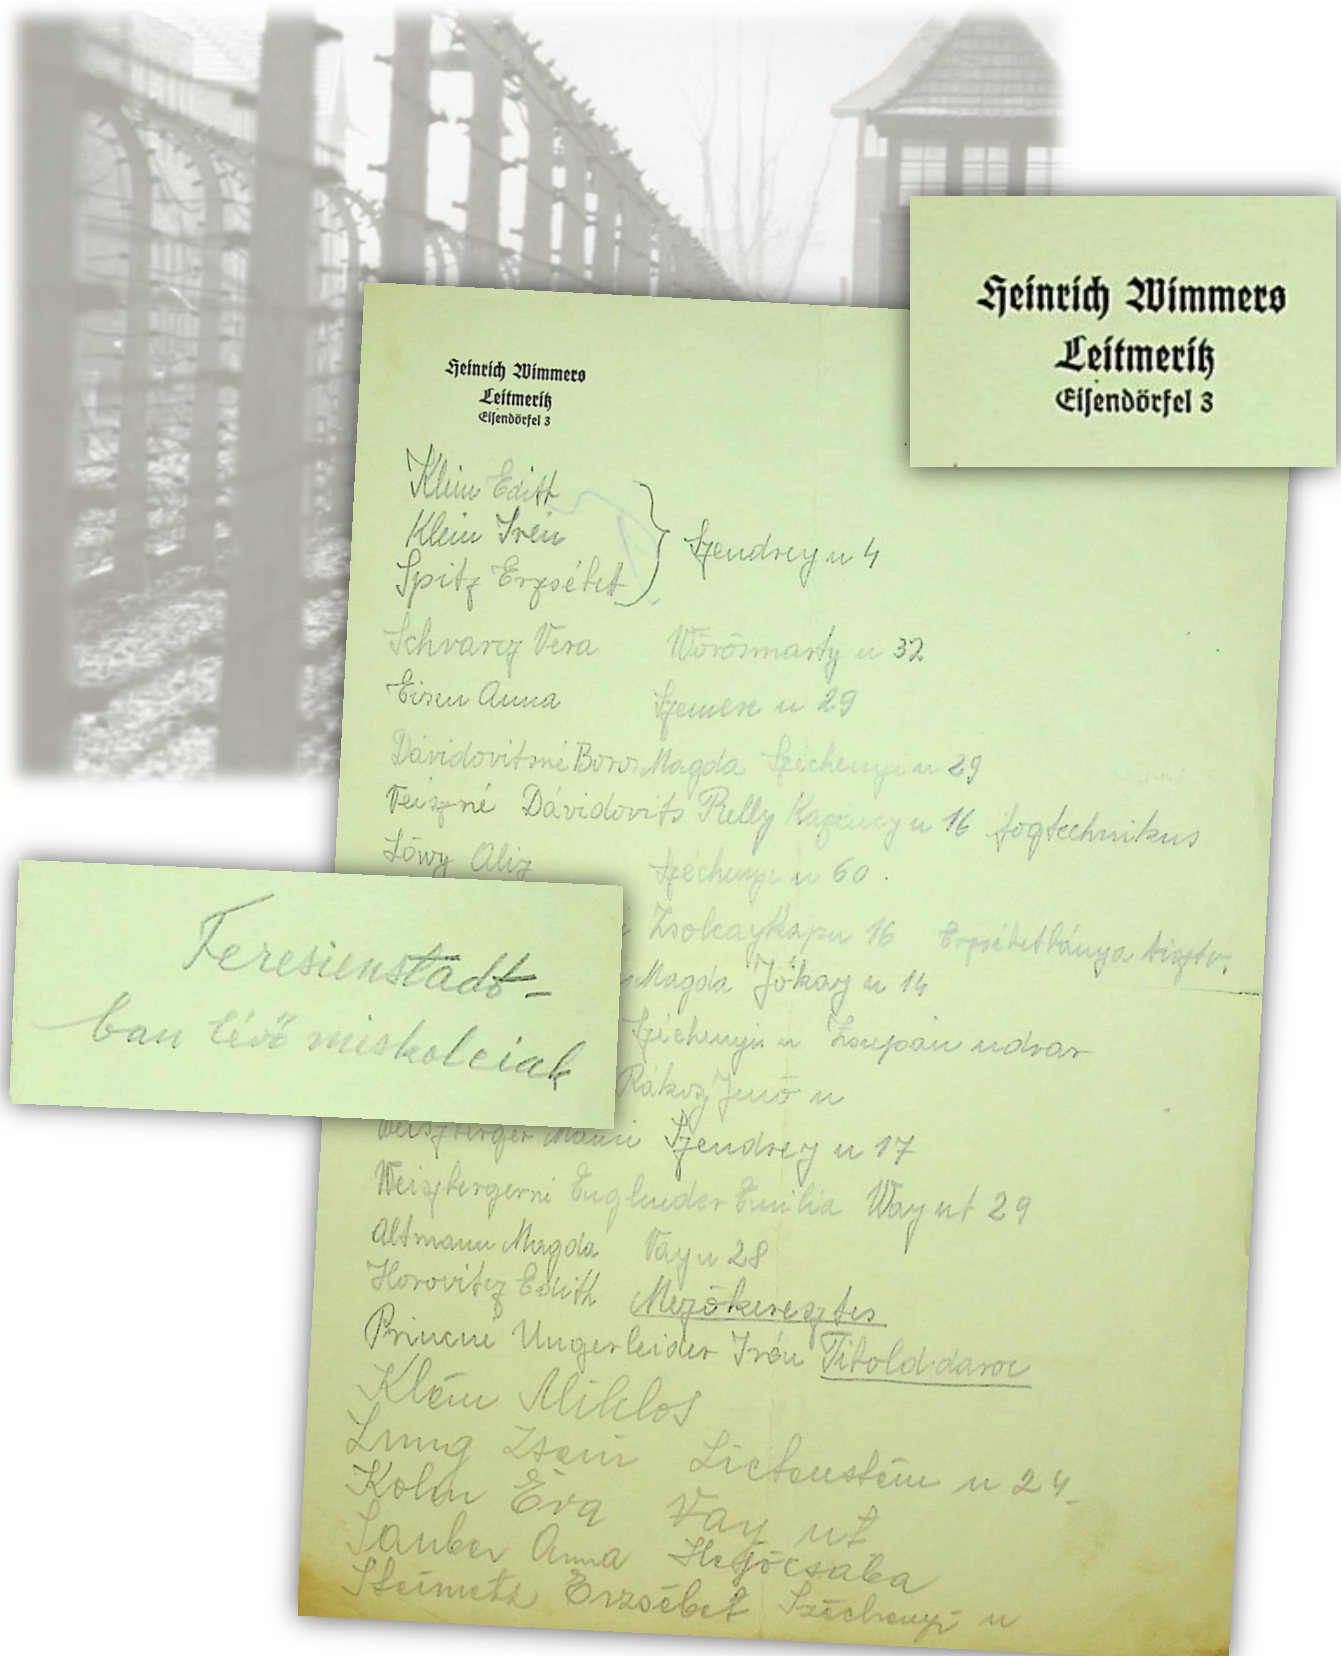 Heinrich Wimmers
Leitmeritz
Eisendörfel 3
Heinrich Wimmers
Leitmeritz
Eisendörfel 3
Klein Edith
Klein Irén
Spitz Erzsébet
Szendrey u 4
Schvarcz Vera Vörösmarty u 32
Eisen Anna Szemere u 29
Dávidovitsné Boros Magda Széchenyi u 29
Veiszné Dávidovits Relly Kazinczy u 16 fogtechnikus
Lőwy Aliz Széchenyi u 60.
Zsolcaykapu 16 Erzsébetbánya tisztv.
Magda Jókay u 14
Széchenyi u udvar
Rákosz Jenő u
Teresienstadt-
ban lévő miskolciak
Weiszberger Manci Szendrey u 17
Weiszbergerné Englender Emilia Way ut 29
Altmann Magda Vay u 28
Horovitcz Edith Mezőkeresztes
Princné Ungerleider Irén Tibold-daroc
Klein Miklos
Lung Lictenstein u 24.
Kohn Éva Vay ut
Tauber Anna Hejőcsaba
Steimetz Erzsébet Széchenyi u